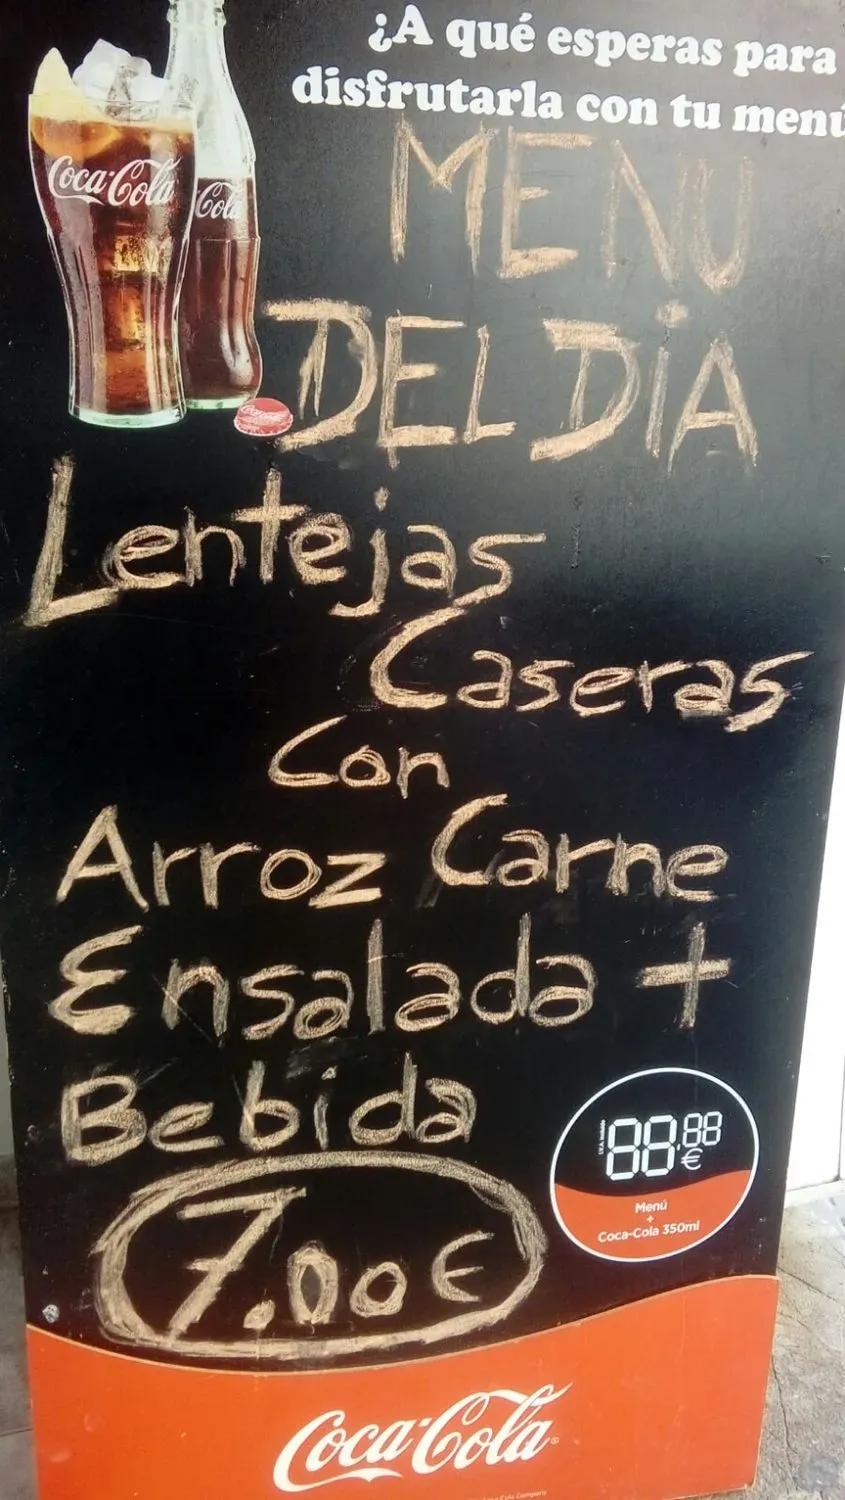 ¿A qué esperas para
disfrutarla con tu menú
Coca-Cola
Cola
MENU
DEL DiA
Lentejas
Caseras
Con
Arroz Carne
Ensalada +
Bebida
88,88
€
Menú
+
Coca-Cola 350ml
7.00€
Coca-Cola